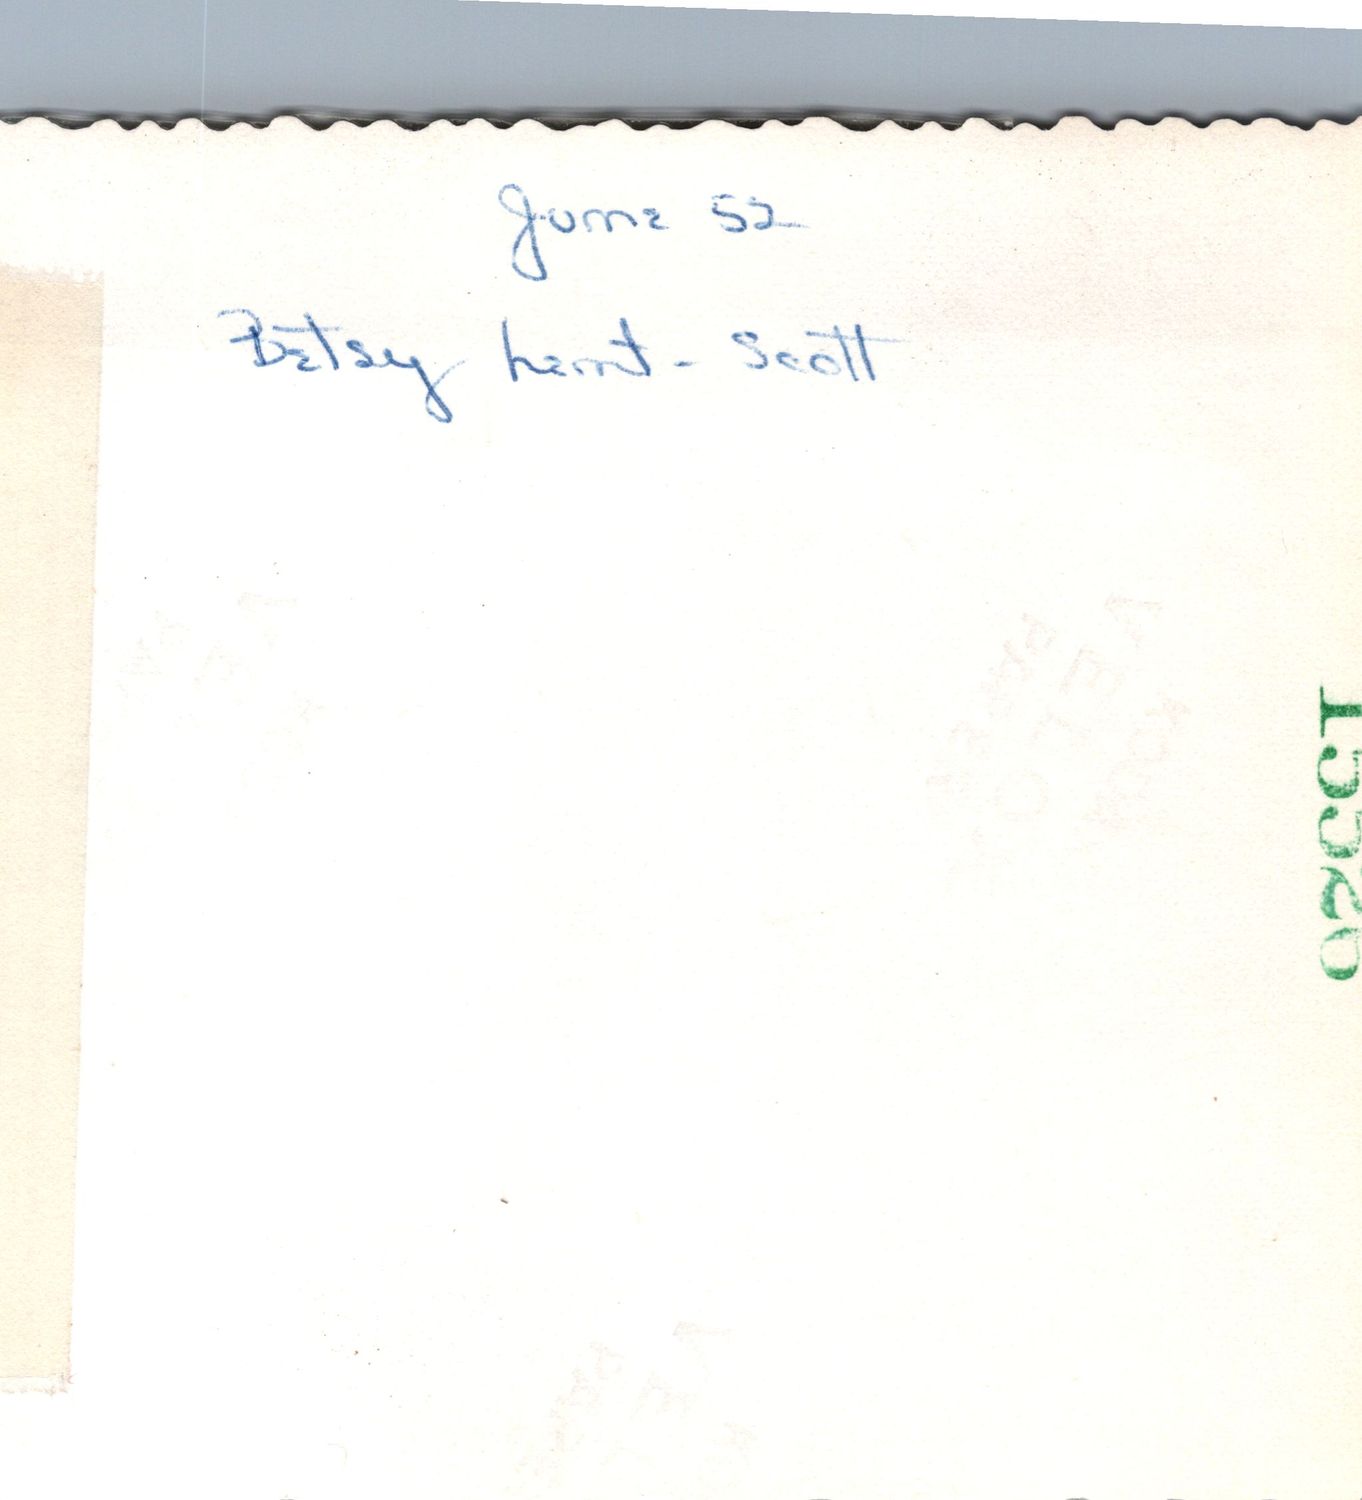 June 52
Betsy Kent - Scott
15526